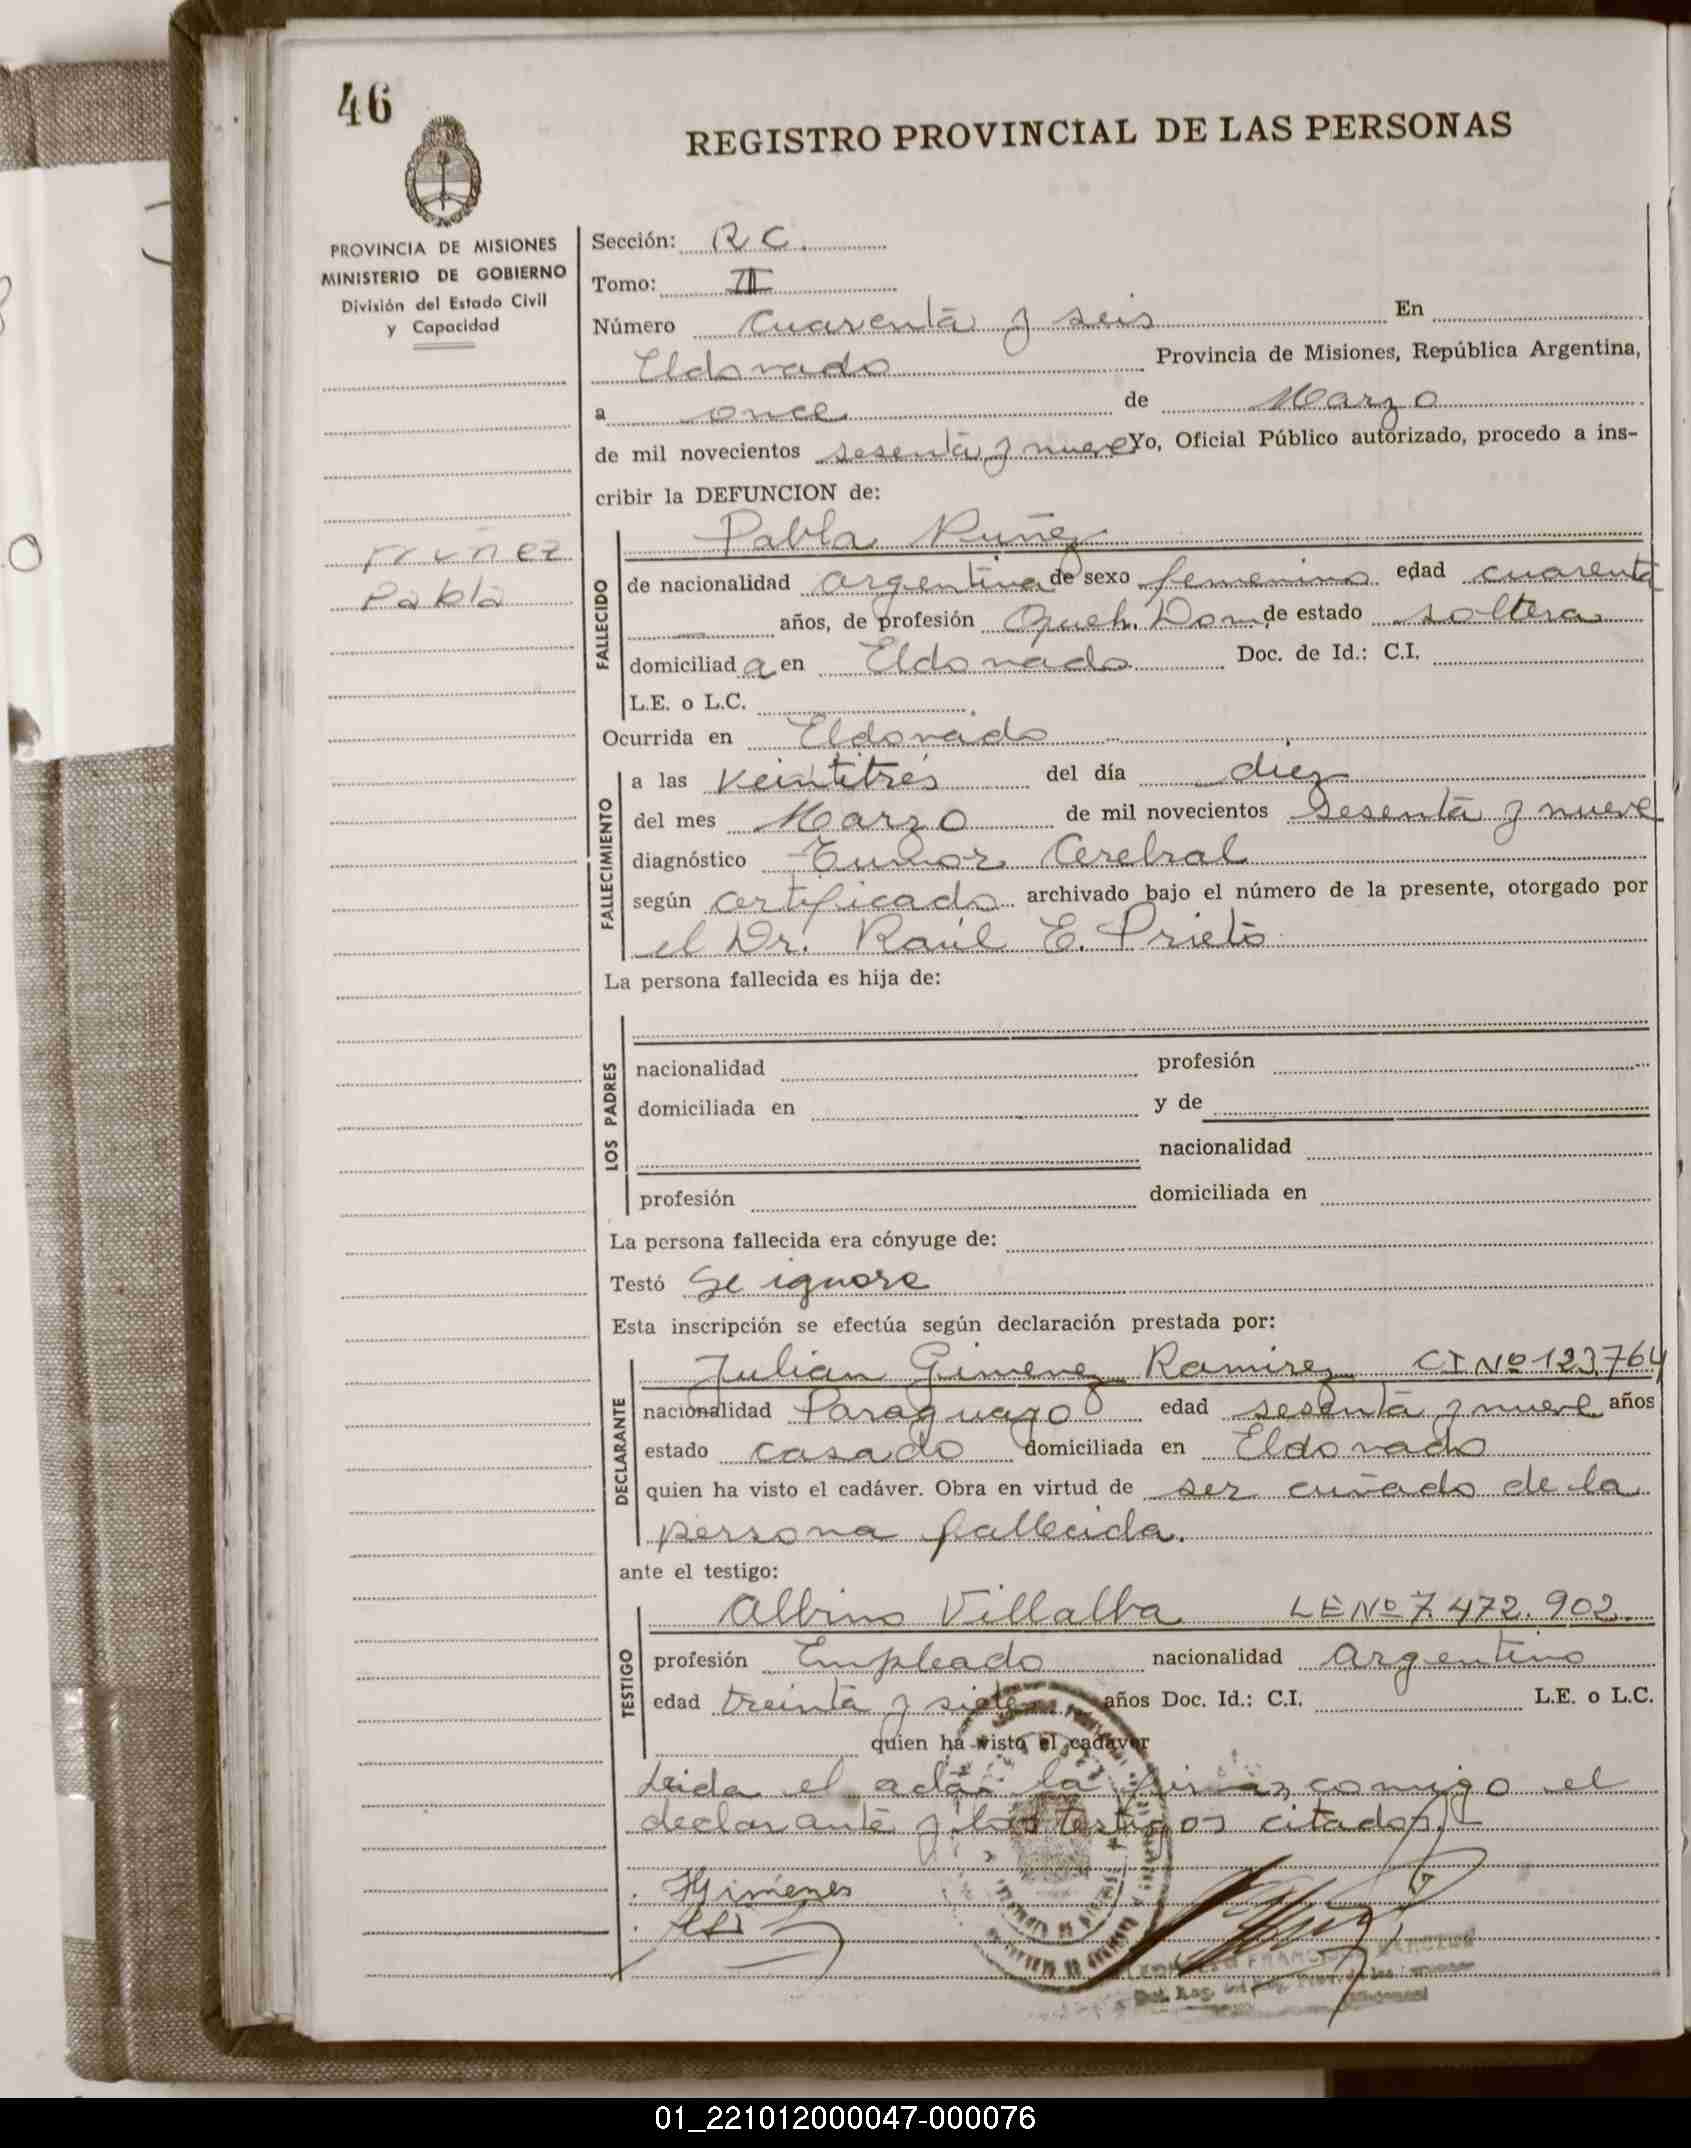 46
REGISTRO PROVINCIAL DE LAS PERSONAS
PROVINCIA DE MISIONES
MINISTERIO DE GOBIERNO
División del Estado Civil
y Capacidad
Nuñez
Pabla
Sección: R C.
Tomo: II
Número cuarenta y seis En
Eldorado Provincia de Misiones, República Argentina,
a once de Marzo
de mil novecientos sesenta y nueve Yo, Oficial Público autorizado, procedo a ins-
cribir la DEFUNCION de:
FALLECIDO
Pabla Nuñez
de nacionalidad argentina de sexo femenino edad cuarenta
años, de profesión Queh. Dom. de estado soltera
domiciliada en Eldorado Doc. de Id.: C.I.
L.E. o L.C.
Ocurrida en Eldorado
FALLECIMIENTO
a las veintitrés del día diez
del mes Marzo de mil novecientos sesenta y nueve
diagnóstico Tumor Cerebral
según certificado archivado bajo el número de la presente, otorgado por
el Dr. Raúl E. Prieto
La persona fallecida es hija de:
LOS PADRES
nacionalidad profesión
domiciliada en y de
nacionalidad
profesión domiciliada en
La persona fallecida era cónyuge de:
Testó Se ignora
Esta inscripción se efectúa según declaración prestada por:
DECLARANTE
Julian Gimenez Ramirez CI Nº 123.764
nacionalidad Paraguayo edad sesenta y nueve años
estado casado domiciliada en Eldorado
quien ha visto el cadáver. Obra en virtud de ser cuñado de la
persona fallecida.
ante el testigo:
TESTIGO
Albino Villalba LE Nº 7.472.902.
profesión Empleado nacionalidad argentino
edad treinta y siete años Doc. Id.: C.I. L.E. o L.C.
quien ha visto el cadáver
Leida el acta la firman comigo el
declarante y los testigos citados.
Gimenes
01_221012000047-000076